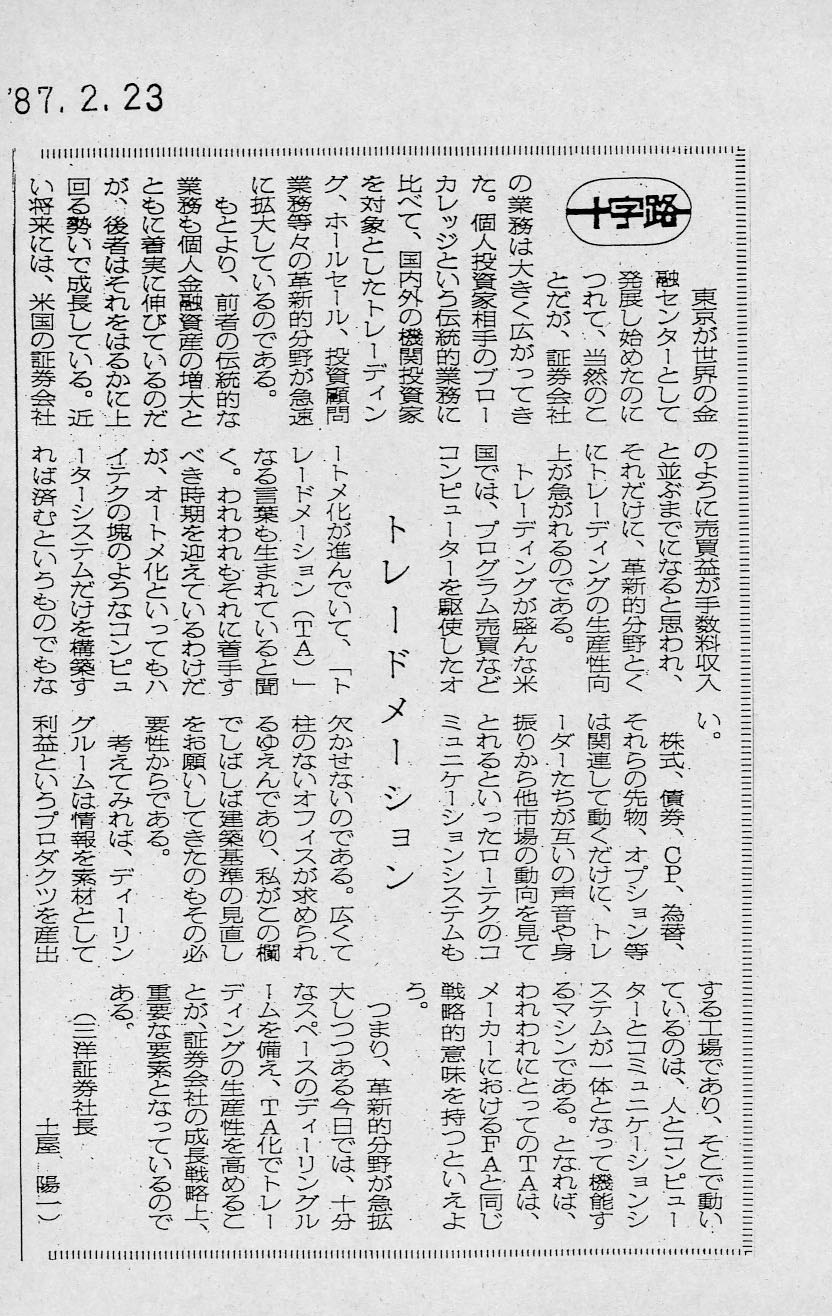 '87.2.23
十字路
トレードメーション
東京が世界の金
融センターとして
発展し始めたのに
つれて、当然のこ
とだが、証券会社
の業務は大きく広がってき
た。個人投資家相手のブロー
カレッジという伝統的業務に
比べて、国内外の機関投資家
を対象としたトレーディン
グ、ホールセール、投資顧問
業務等々の革新的分野が急速
に拡大しているのである。
もとより、前者の伝統的な
業務も個人金融資産の増大と
ともに着実に伸びているのだ
が、後者はそれをはるかに上
回る勢いで成長している。近
い将来には、米国の証券会社
のように売買益が手数料収入
と並ぶまでになると思われ、
それだけに、革新的分野とく
にトレーディングの生産性向
上が急がれるのである。
トレーディングが盛んな米
国では、プログラム売買など
コンピューターを駆使したオ
ートメ化が進んでいて、「ト
レードメーション（ＴＡ）」
なる言葉も生まれていると聞
く。われわれもそれに着手す
べき時期を迎えているわけだ
が、オートメ化といってもハ
イテクの塊のようなコンピュ
ーターシステムだけを構築す
れば済むというものでもな
い。
株式、債券、ＣＰ、為替、
それらの先物、オプション等
は関連して動くだけに、トレ
ーダーたちが互いの声音や身
振りから他市場の動向を見て
とれるといったローテクのコ
ミュニケーションシステムも
欠かせないのである。広くて
柱のないオフィスが求められ
るゆえんであり、私がこの欄
でしばしば建築基準の見直し
をお願いしてきたのもその必
要性からである。
考えてみれば、ディーリン
グルームは情報を素材として
利益というプロダクツを産出
する工場であり、そこで動い
ているのは、人とコンピュー
ターとコミュニケーションシ
ステムが一体となって機能す
るマシンである。となれば、
われわれにとってのＴＡは、
メーカーにおけるＦＡと同じ
戦略的意味を持つといえよ
う。
つまり、革新的分野が急拡
大しつつある今日では、十分
なスペースのディーリングル
ームを備え、ＴＡ化でトレー
ディングの生産性を高めるこ
とが、証券会社の成長戦略上、
重要な要素となっているので
ある。
（三洋証券社長
土屋　陽一）